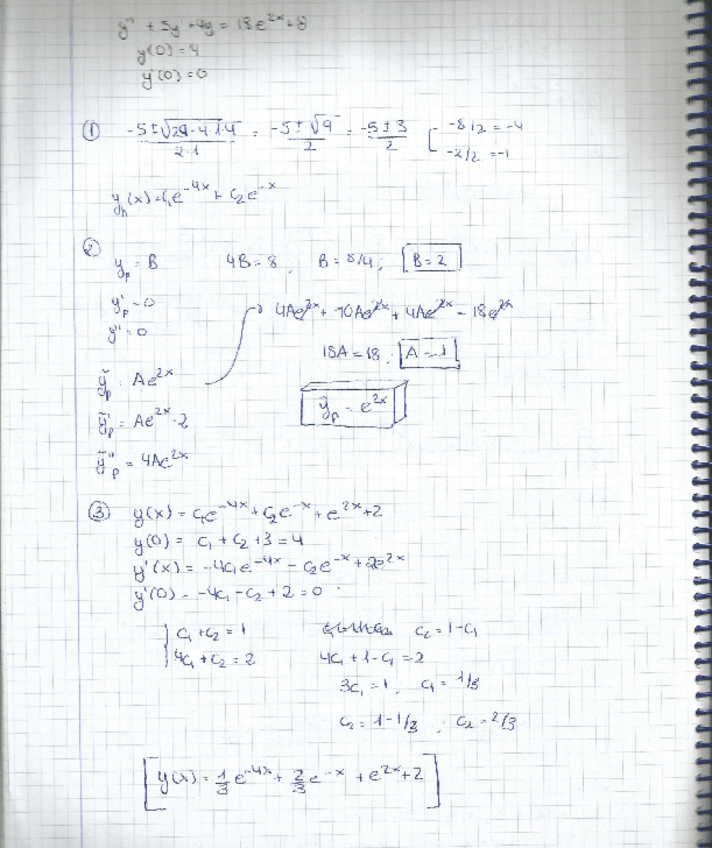 y'' + 5y' + 4y = 18e^{2x} + 8
y(0) = 4
y'(0) = 0
① (-5 ± √(25-4·1·4))/(2·1) = (-5 ± √9)/2 = (-5 ± 3)/2 [ -8/2 = -4
-2/2 = -1
y_h(x) = c₁e^{-4x} + c₂e^{-x}
②
y_p = B 4B = 8, B = 8/4; B = 2
y'_p = 0 4Ae^{2x} + 10Ae^{2x} + 4Ae^{2x} = 18e^{2x}
y'' = 0
18A = 18; A = 1
ỹ_p = Ae^{2x}
ỹ_p = e^{2x}
ỹ'_p = Ae^{2x}·2
ỹ''_p = 4Ae^{2x}
③ y(x) = c₁e^{-4x} + c₂e^{-x} + e^{2x} + 2
y(0) = c₁ + c₂ + 3 = 4
y'(x) = -4c₁e^{-4x} - c₂e^{-x} + 2e^{2x}
y'(0) = -4c₁ - c₂ + 2 = 0
c₁ + c₂ = 1 c₂ = 1 - c₁
4c₁ + c₂ = 2 4c₁ + 1 - c₁ = 2
3c₁ = 1, c₁ = 1/3
c₂ = 1 - 1/3; c₂ = 2/3
[y(x) = 1/3 e^{-4x} + 2/3 e^{-x} + e^{2x} + 2]